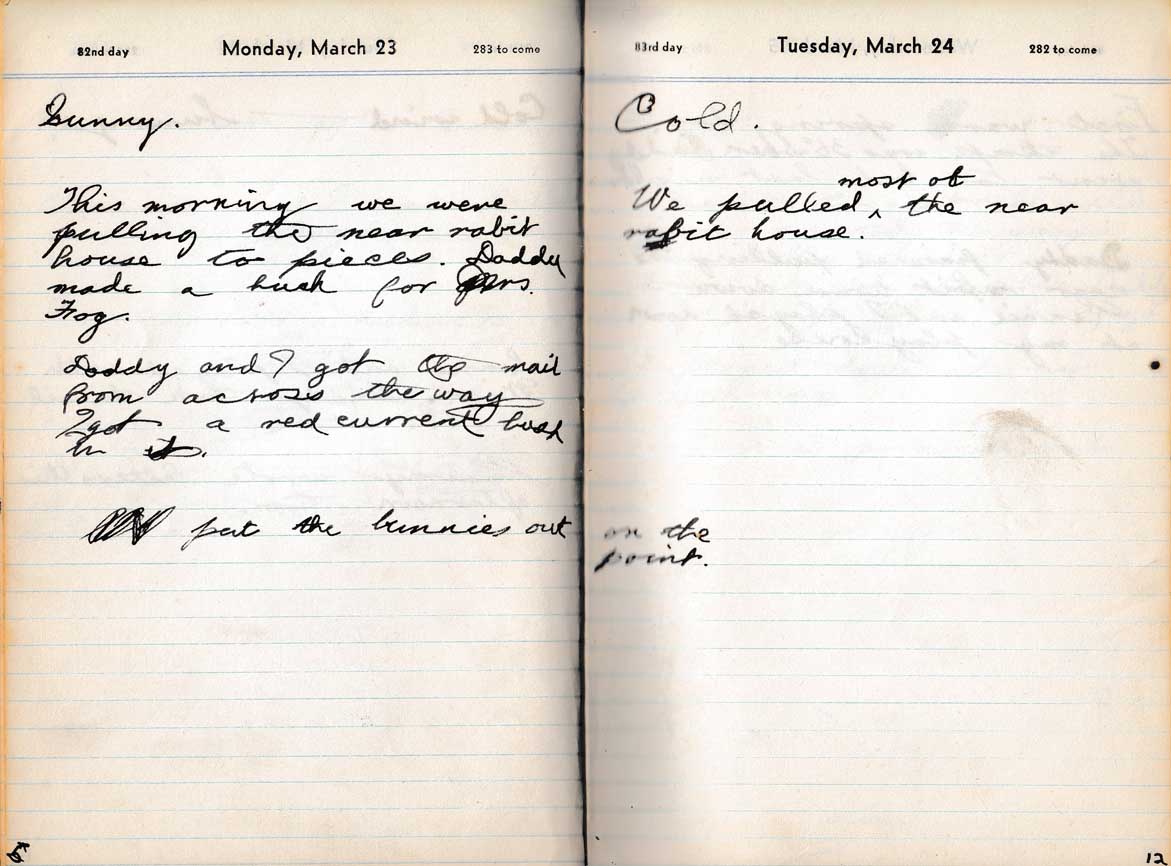 82nd day Monday, March 23 283 to come
Sunny.
This morning we were
pulling the near rabit
house to pieces. Daddy
made a huch for Mrs.
Frog.
Daddy and I got the mail
from across the way
I got a red current bush
in it.
put the bunnies out on the
point.
83rd day Tuesday, March 24 282 to come
Cold.
most of
We pulled ^ the near
rabit house.
12